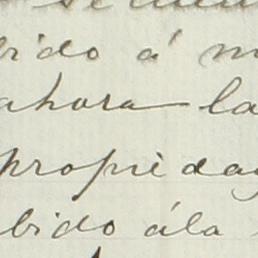 bido á m
ahora la
propieda
bido ála